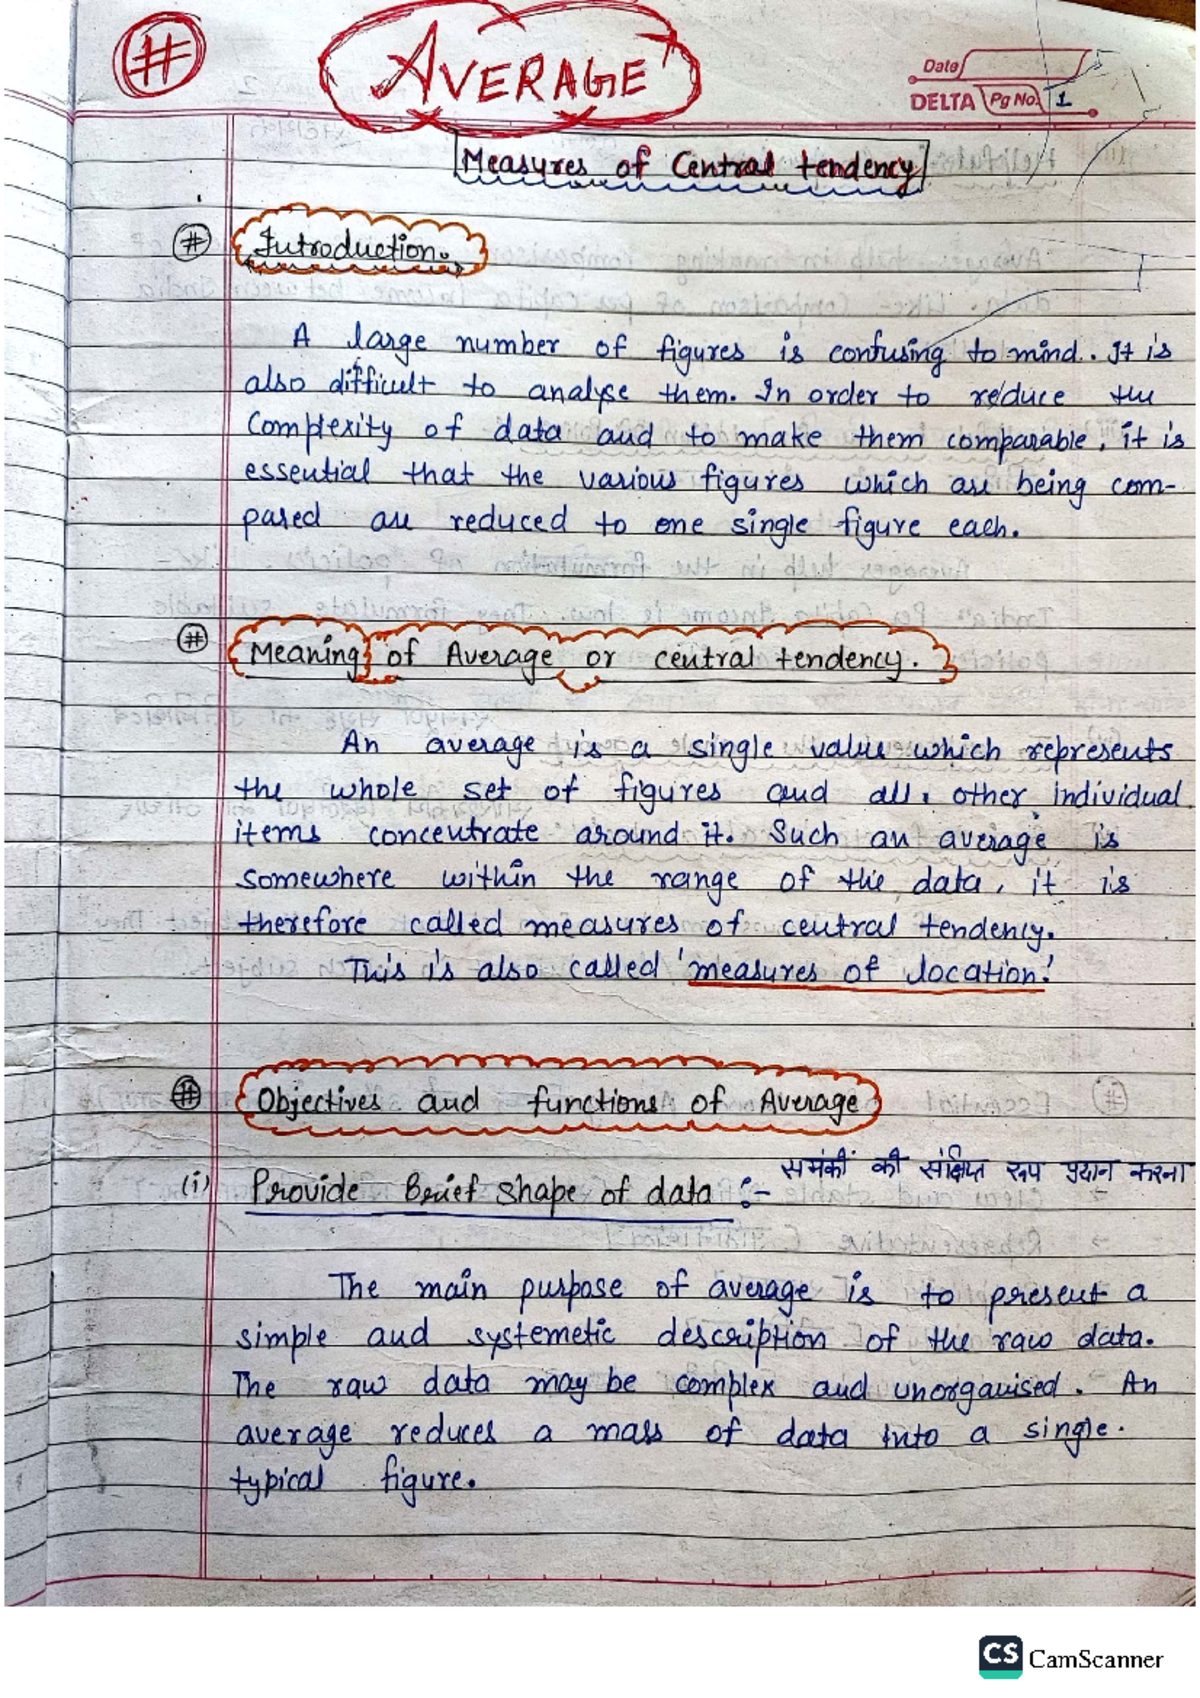 #
AVERAGE
Date
DELTA Pg No. 1
Measures of Central tendency
# Introduction.
A large number of figures is confusing to mind. It is
also difficult to analyse them. In order to reduce the
Complexity of data and to make them comparable, it is
essential that the various figures which are being com-
pared are reduced to one single figure each.
# Meaning of Average or central tendency.
An average is a single value which represents
the whole set of figures and all other individual
items concentrate around it. Such an average is
somewhere within the range of the data, it is
therefore called measures of central tendency.
This is also called 'measures of location.'
# Objectives and functions of Average
समंकों को संक्षिप्त रूप प्रदान करना
(i) Provide Brief shape of data :-
The main purpose of average is to present a
simple and systemetic description of the raw data.
The raw data may be complex and unorganised. An
average reduces a mass of data into a single.
typical figure.
CS CamScanner